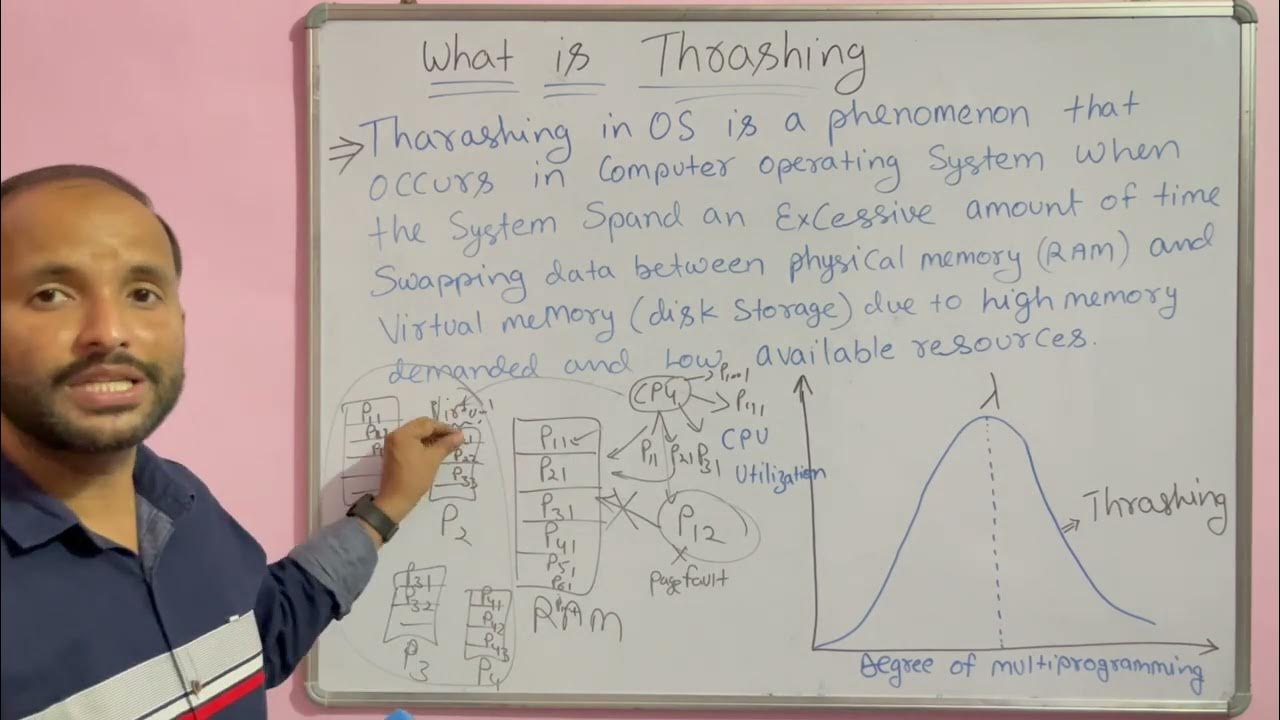 What is Thrashing
⇒ Tharashing in OS is a phenomenon that
occurs in Computer operating System when
the System Spand an Excessive amount of time
Swapping data between physical memory (RAM) and
Virtual memory (disk Storage) due to high memory
demanded and Low available resources.
CPU
P11
P21
P31
P12
page fault
P11
P21
P31
P41
P51
RAM
P11
P33
P2
P31
P32
P3
P41
P42
P43
P4
λ
CPU
Utilization
⇒ Thrashing
Degree of multiprogramming